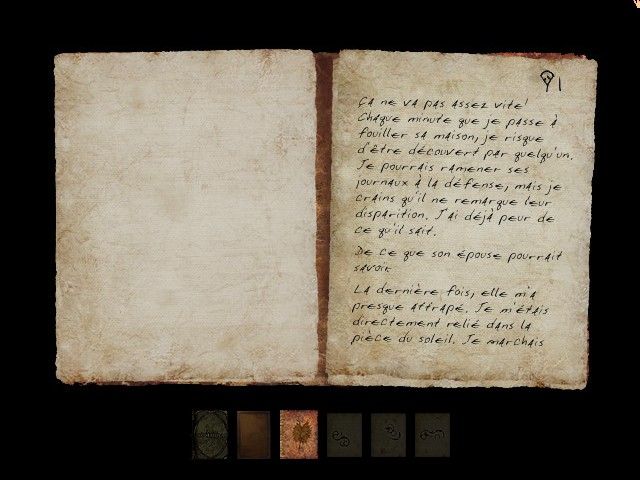 91
Ça ne va pas assez vite!
Chaque minute que je passe à
fouiller sa maison, je risque
d'être découvert par quelqu'un.
Je pourrais ramener ses
journaux à la défense, mais je
crains qu'il ne remarque leur
disparition. J'ai déjà peur de
ce qu'il sait.
De ce que son épouse pourrait
savoir.
La dernière fois, elle m'a
presque attrapé. Je m'étais
directement relié dans la
pièce du soleil. Je marchais